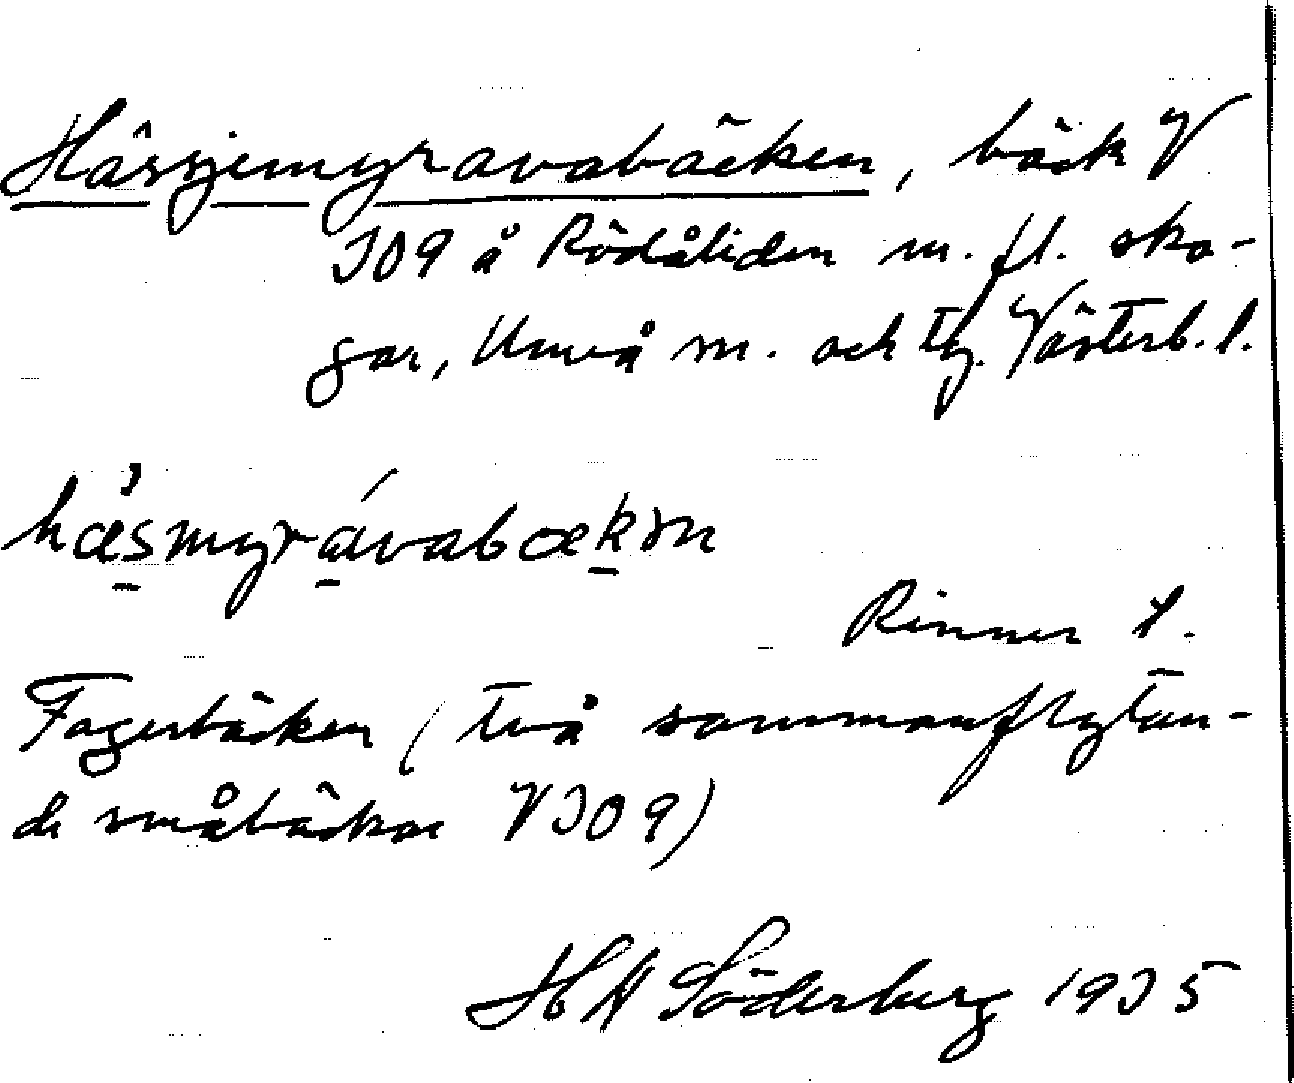 Hässjemyravabäcken, bäck V
309 å Rödåliden m. fl. sko-
gar, Umeå sn. och tg. Västerb. l.
hæsmyrávabækɤn
Rinner t.
Fagerbäcken (två sammanflytan-
de småbäckar V 309)
H A Söderberg 1935